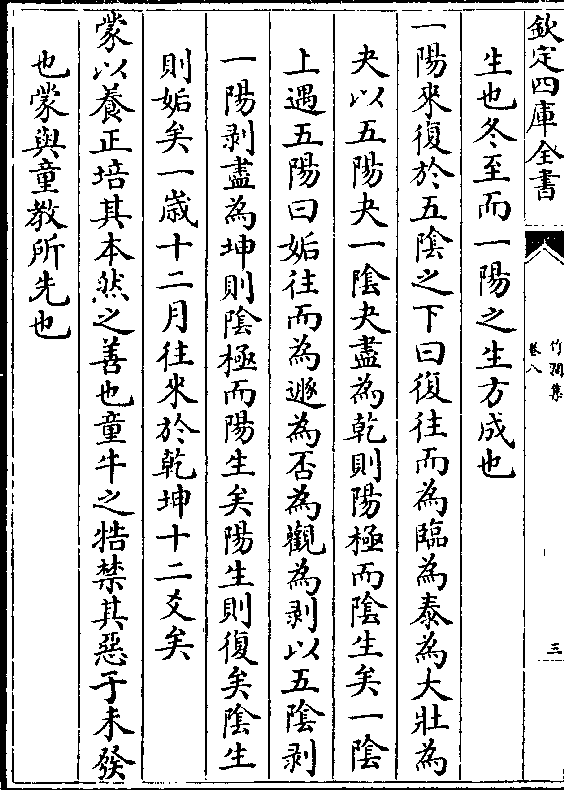 欽定四庫全書
竹澗集
卷八
三
生也冬至而一陽之生方成也
一陽來復於五陰之下曰復往而為臨為泰為大壯為
夬以五陽夬一陰夬盡為乾則陽極而陰生矣一陰
上遇五陽曰姤往而為遯為否為觀為剥以五陰剥
一陽剥盡為坤則陰極而陽生矣陽生則復矣陰生
則姤矣一歲十二月往來於乾坤十二爻矣
蒙以養正培其本然之善也童牛之牿禁其惡于未發
也蒙與童教所先也